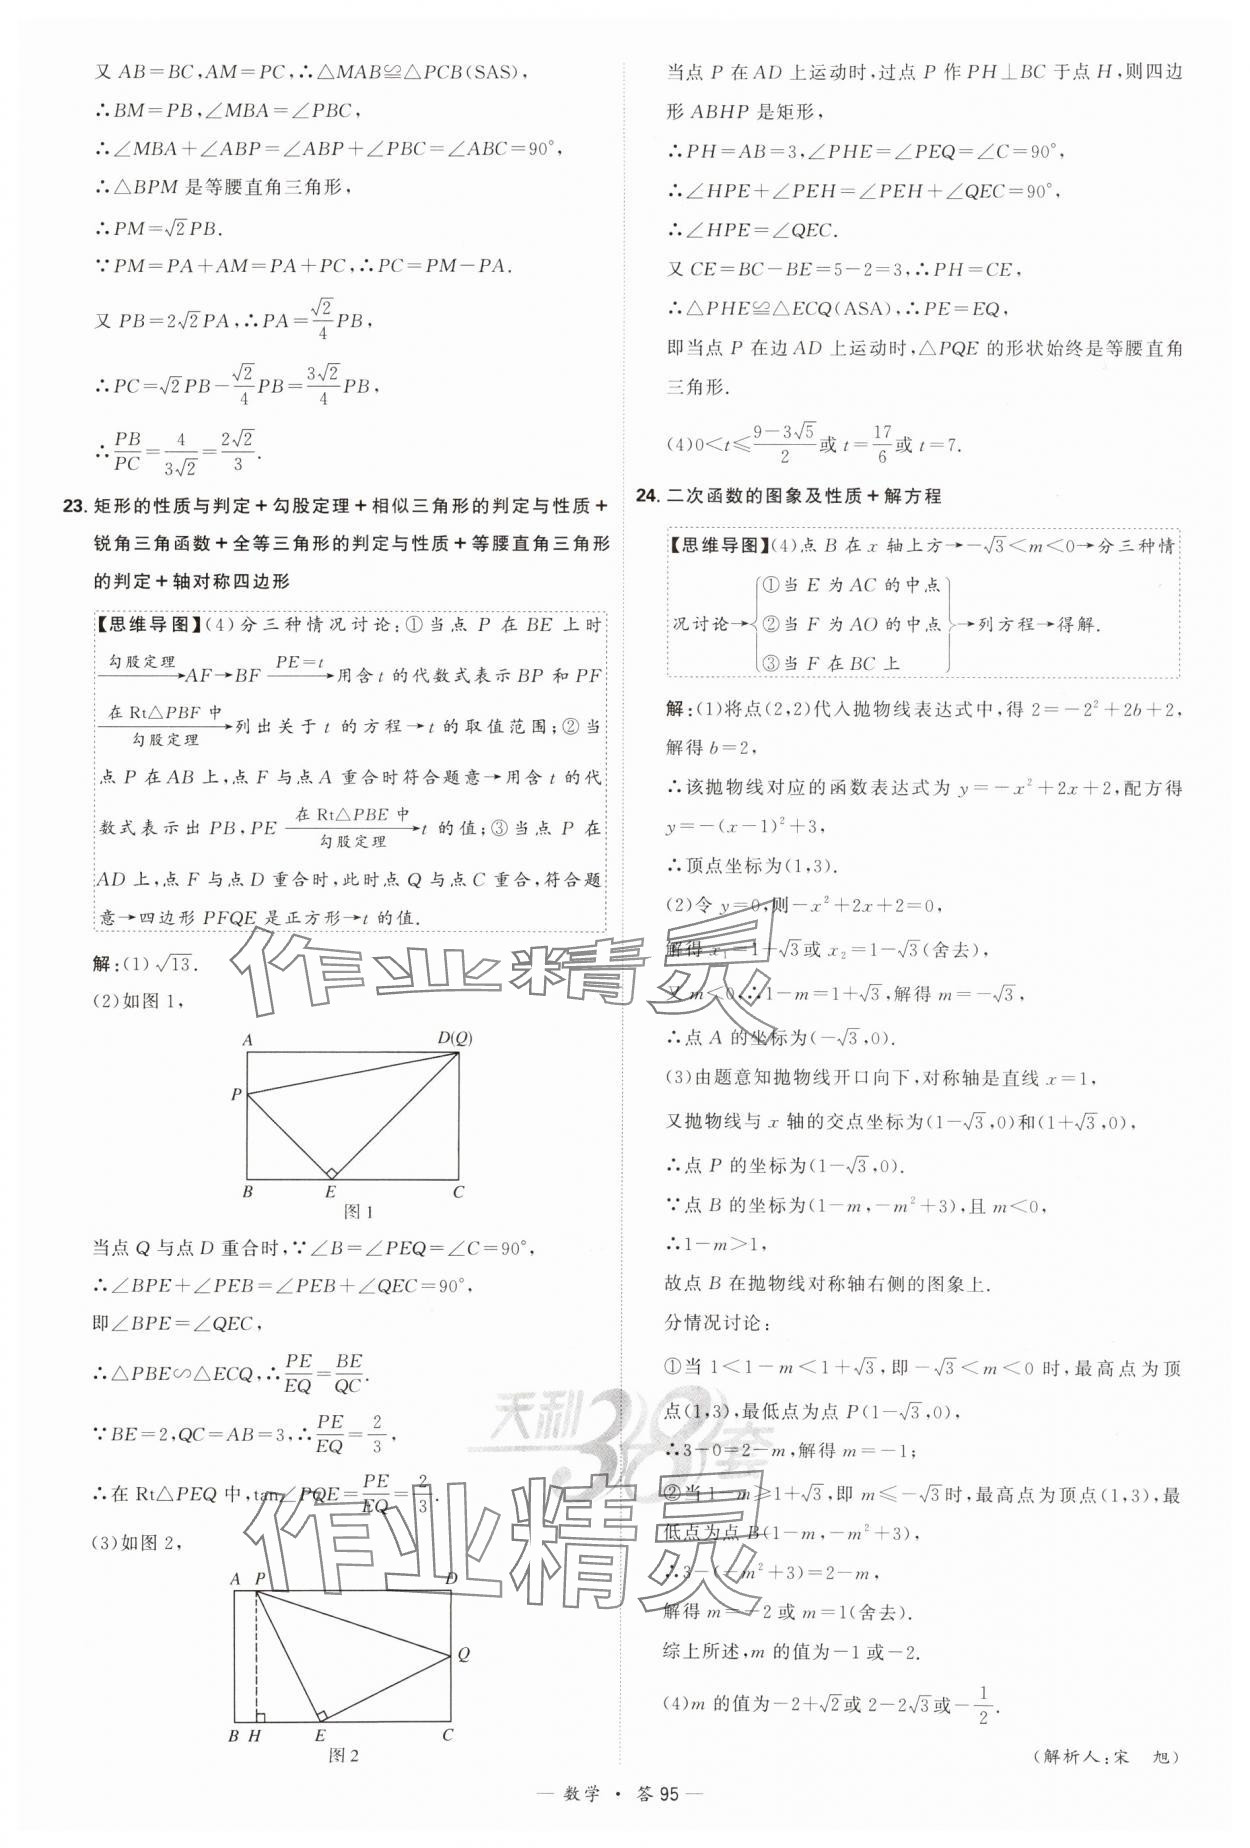 又 AB=BC,AM=PC,∴△MAB≌△PCB(SAS),
∴BM=PB,∠MBA=∠PBC,
∴∠MBA+∠ABP=∠ABP+∠PBC=∠ABC=90°,
∴△BPM 是等腰直角三角形,
∴PM=√2PB.
∵PM=PA+AM=PA+PC,∴PC=PM-PA.
又 PB=2√2PA,∴PA=√2/4 PB,
∴PC=√2PB-√2/4 PB=3√2/4 PB,
∴PB/PC=4/3√2=2√2/3.
23. 矩形的性质与判定+勾股定理+相似三角形的判定与性质+
锐角三角函数+全等三角形的判定与性质+等腰直角三角形
的判定+轴对称四边形
【思维导图】(4)分三种情况讨论:①当点 P 在 BE 上时
勾股定理→AF→BF PE=t→用含 t 的代数式表示 BP 和 PF
在 Rt△PBF 中 勾股定理→列出关于 t 的方程→t 的取值范围;②当
点 P 在 AB 上,点 F 与点 A 重合时符合题意→用含 t 的代
数式表示出 PB,PE 在 Rt△PBE 中 勾股定理→t 的值;③当点 P 在
AD 上,点 F 与点 D 重合时,此时点 Q 与点 C 重合,符合题
意→四边形 PFQE 是正方形→t 的值.
解:(1)√13.
(2)如图 1,
A D(Q)
P
B E C
图 1
当点 Q 与点 D 重合时,∵∠B=∠PEQ=∠C=90°,
∴∠BPE+∠PEB=∠PEB+∠QEC=90°,
即∠BPE=∠QEC,
∴△PBE∽△ECQ,∴PE/EQ=BE/QC.
∵BE=2,QC=AB=3,∴PE/EQ=2/3,
∴在 Rt△PEQ 中,tan∠PQE=PE/EQ=2/3.
(3)如图 2,
A P D
Q
B H E C
图 2
当点 P 在 AD 上运动时,过点 P 作 PH⊥BC 于点 H,则四边
形 ABHP 是矩形,
∴PH=AB=3,∠PHE=∠PEQ=∠C=90°,
∴∠HPE+∠PEH=∠PEH+∠QEC=90°,
∴∠HPE=∠QEC.
又 CE=BC-BE=5-2=3,∴PH=CE,
∴△PHE≌△ECQ(ASA),∴PE=EQ,
即当点 P 在边 AD 上运动时,△PQE 的形状始终是等腰直角
三角形.
(4)0<t≤9-3√5/2或 t=17/6或 t=7.
24. 二次函数的图象及性质+解方程
【思维导图】(4)点 B 在 x 轴上方→-√3<m<0→分三种情
①当 E 为 AC 的中点
况讨论→②当 F 为 AO 的中点→列方程→得解.
③当 F 在 BC 上
解:(1)将点(2,2)代入抛物线表达式中,得 2=-2²+2b+2,
解得 b=2,
∴该抛物线对应的函数表达式为 y=-x²+2x+2,配方得
y=-(x-1)²+3,
∴顶点坐标为(1,3).
(2)令 y=0,则-x²+2x+2=0,
解得 x₁=1+√3或 x₂=1-√3(舍去),
又 m<0,∴1-m=1+√3,解得 m=-√3,
∴点 A 的坐标为(-√3,0).
(3)由题意知抛物线开口向下,对称轴是直线 x=1,
又抛物线与 x 轴的交点坐标为(1-√3,0)和(1+√3,0),
∴点 P 的坐标为(1-√3,0).
∵点 B 的坐标为(1-m,-m²+3),且 m<0,
∴1-m>1,
故点 B 在抛物线对称轴右侧的图象上.
分情况讨论:
①当 1<1-m<1+√3,即-√3<m<0 时,最高点为顶
点(1,3),最低点为点 P(1-√3,0),
∴3-0=2-m,解得 m=-1;
②当 1-m≥1+√3,即 m≤-√3时,最高点为顶点(1,3),最
低点为点 B(1-m,-m²+3),
∴3-(-m²+3)=2-m,
解得 m=-2 或 m=1(舍去).
综上所述,m 的值为-1 或-2.
(4)m 的值为-2+√2或 2-2√3或-1/2.
(解析人:宋 旭)
— 数学 · 答 95 —
作业精灵
天利38套
作业精灵